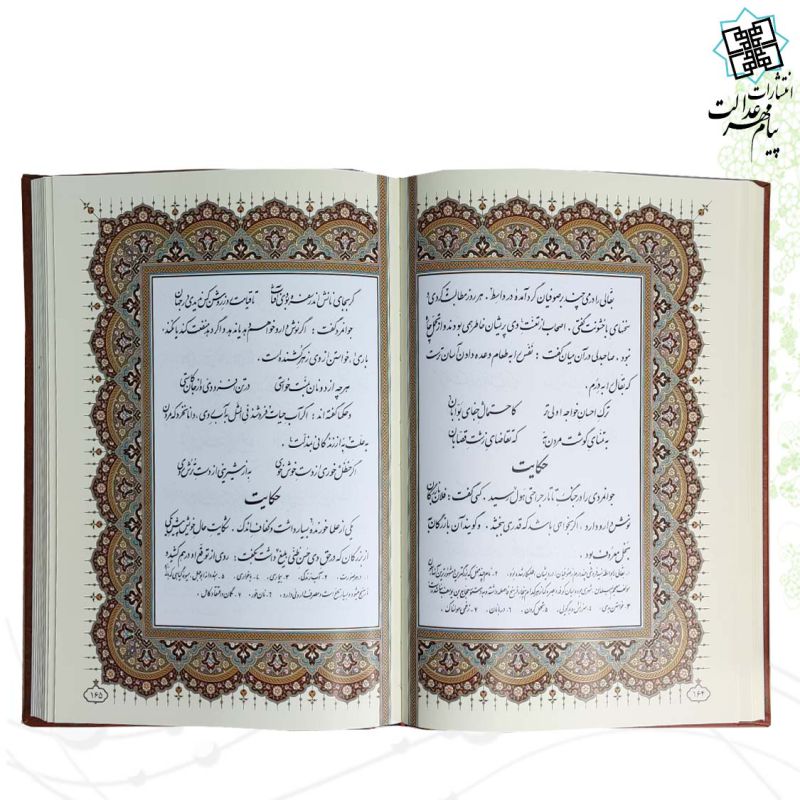 انتشارات
پیام مهر عدالت
بقالی را درمی چند بر صوفیان گرد آمده بود در واسط. هر روز مطالبت کردی و
سخنهای با خشونت گفتی. اصحاب از تعنت وی پریشان خاطر همی بودند و از تحمل چاره
نبود. صاحبدلی در آن میان گفت: نفس را به طعام وعده دادن آسان ترست
که بقال را به درم.
ترک احسان خواجه اولی تر کاحتمال جفای بوابان
به تمنای گوشت مردن به که تقاضای زشت قصابان
حکایت
جوانمردی را در جنگ تاتار جراحتی هول رسید. کسی گفت: فلان بازرگان
نوشدارو دارد، اگر بخواهی باشد که قدری ببخشد. و گویند آن بازرگان
به بخل معروف بود.
۱۶۴
گر بجای نانش اندر سفره بودی آفتاب تا قیامت روز روشن کس ندیدی در جهان
جوانمرد گفت: اگر نوشدارو خواهم دهد یا ندهد و اگر دهد منفعت کند یا نکند.
باری، خواستن از وی زهر کشنده است.
هر چه از دونان به منت خواستی در تن افزودی و از جان کاستی
و حکما گفته اند: اگر آب حیات فروشند فی المثل به آب روی، دانا نخرد که مردن
به علت به از زندگانی به مذلت.
اگر حنظل خوری از دست خوش خوی به از شیرینی از دست ترش روی
حکایت
یکی از علما خورنده بسیار داشت و کفاف اندک. شکایت حال خویش پیش یکی
از بزرگان که در حق وی حسن ظنی بلیغ داشت بگفت: روی از توقع او درهم کشید و
۱۶۵